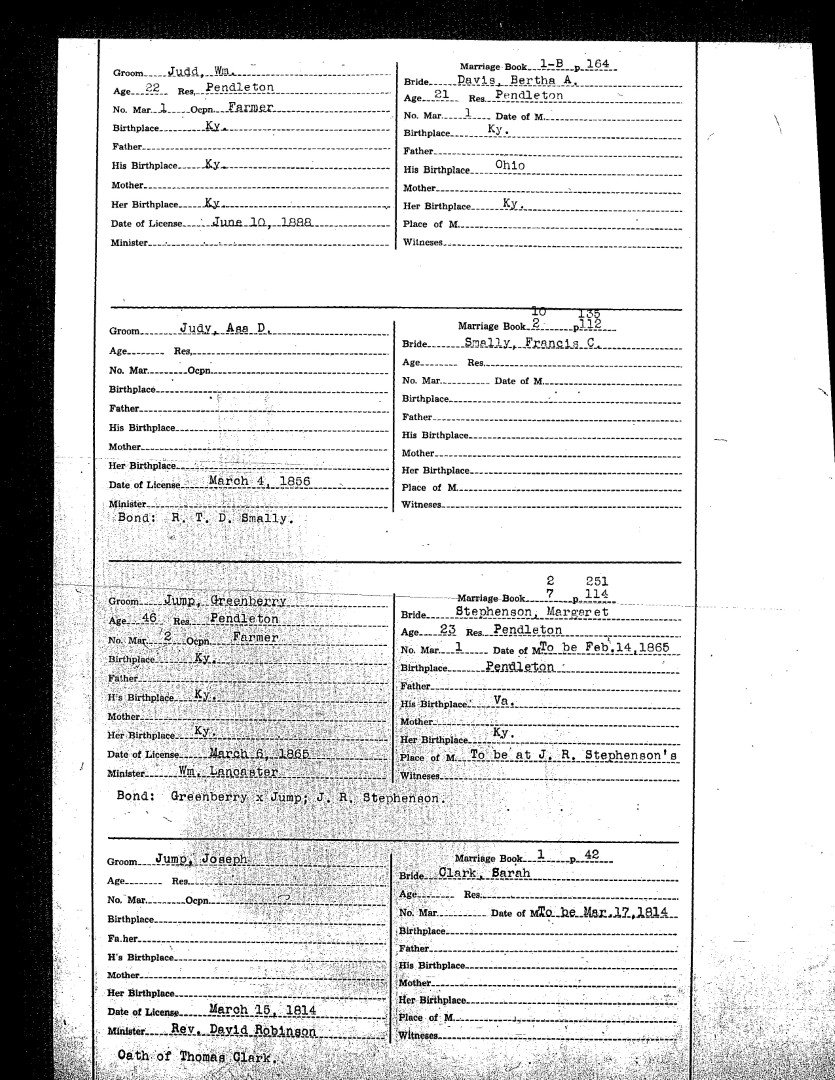 Groom Judd, Wm.
Age 22 Res. Pendleton
No. Mar. 1 Ocpn. Farmer
Birthplace Ky.
Father
His Birthplace Ky.
Mother
Her Birthplace Ky.
Date of License June 10, 1888
Minister
Marriage Book 1-B p. 164
Bride Davis, Bertha A.
Age 21 Res. Pendleton
No. Mar. 1 Date of M.
Birthplace Ky.
Father
His Birthplace Ohio
Mother
Her Birthplace Ky.
Place of M.
Witneses
Groom Judy, Asa D.
Age Res.
No. Mar. Ocpn.
Birthplace
Father
His Birthplace
Mother
Her Birthplace
Date of License March 4, 1856
Minister
Bond: R. T. D. Smally.
10 135
Marriage Book 2 p. 112
Bride Smally, Francis C.
Age Res.
No. Mar. Date of M.
Birthplace
Father
His Birthplace
Mother
Her Birthplace
Place of M.
Witneses
Groom Jump, Greenberry
Age 46 Res. Pendleton
No. Mar. 2 Ocpn. Farmer
Birthplace Ky.
Father
H's Birthplace Ky.
Mother
Her Birthplace Ky.
Date of License March 6, 1865
Minister Wm. Lancaster
Bond: Greenberry x Jump; J. R. Stephenson.
2 251
Marriage Book 7 p. 114
Bride Stephenson, Margaret
Age 23 Res. Pendleton
No. Mar. 1 Date of M. To be Feb.14,1865
Birthplace Pendleton
Father
His Birthplace Va.
Mother
Her Birthplace Ky.
Place of M. To be at J. R. Stephenson's
Witneses
Groom Jump, Joseph
Age Res.
No. Mar. Ocpn.
Birthplace
Fa.her
H's Birthplace
Mother
Her Birthplace
Date of License March 15, 1814
Minister Rev. David Robinson
Oath of Thomas Clark.
Marriage Book 1 p. 42
Bride Clark, Sarah
Age Res.
No. Mar. Date of M. To be Mar.17,1814
Birthplace
Father
His Birthplace
Mother
Her Birthplace
Place of M.
Witneses